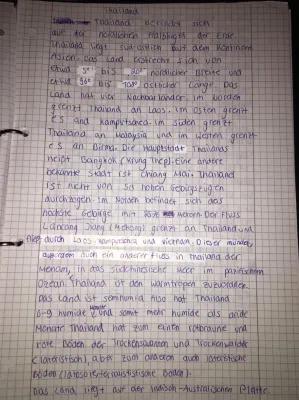 Thailand
Thailand befindet sich
auf der nördlichen Halbkugel der Erde.
Thailand liegt südöstlich auf dem Kontinent
Asien. Das Land erstreckt sich von
etwa 5° bis 20° nördlicher Breite und
etwa 96° bis 106° östlicher Länge. Das
Land hat vier Nachbarländer. Im Norden
grenzt Thailand an Laos, im Osten grenzt
es and Kamputsanea. Im süden grenzt
Thailand an Malaysia und im Westen grenzt
es an Birma. Die Hauptstadt Thailands
heißt Bangkok (Krung Thep). Eine andere
bekannte Stadt ist Chiang Mai. Thailand
ist nicht von so hohen Gebirgszügen
durchzogen. Im Norden befindet sich das
höchste Gebirge mit Metern. Der Fluss
Lancang Jiang (Mekong) grenzt an Thailand und
fließt durch Laos, Kamputschea und Vietnam. Dieser mündet,
außerdem auch ein anderer Fluss in Thailand der
Menam, in das südchinesische Meer im pazifischen
Ozean. Thailand ist den Warmtropen zuzuordnen.
Das Land ist semihumid also hat Thailand
6-9 humide Monate und somit mehr humide als aride
Monate. Thailand hat zum einen rotbraune und
rote Böden der Trockensavannen und Trockenwälder
(lateristisch), aber zum anderen auch lateristische
Böden
Das Land liegt auf der Indisch-Australischen Platte.